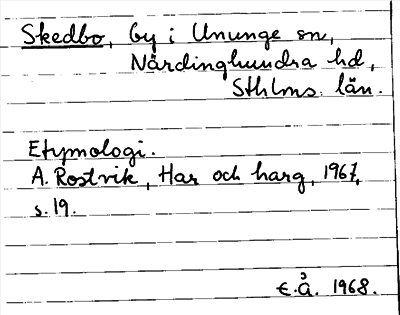 Skedbo, by i Ununge sn,
Närdinghundra hd,
Sthlms. län.
Etymologi.
A. Rostvik, Har och harg, 1967,
s. 19.
E.Å. 1968.